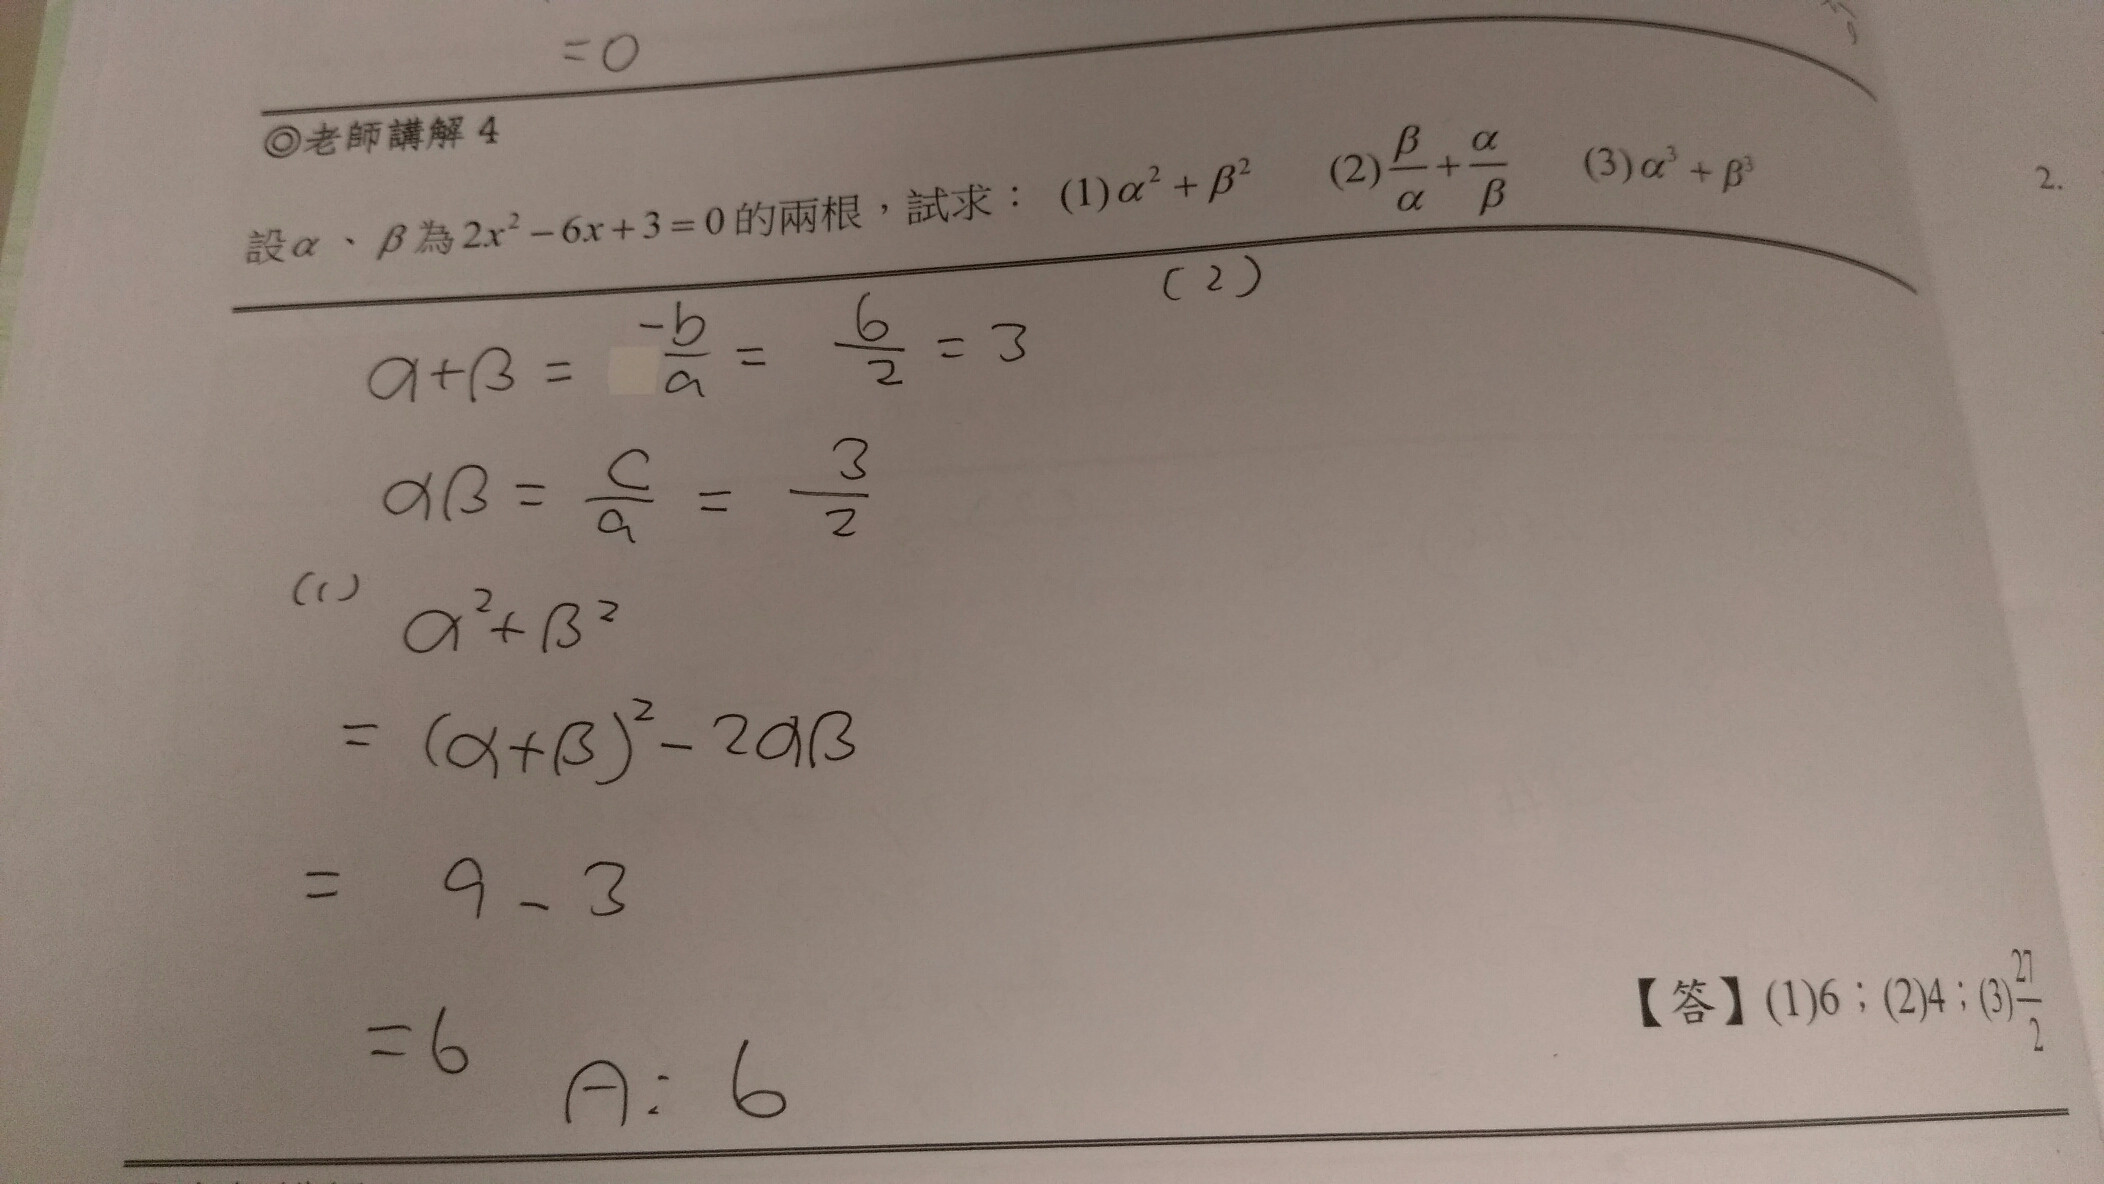 =0
◎老師講解 4
設α、β為2x²−6x+3=0的兩根，試求： (1)α²+β² (2)β/α+α/β (3)α³+β³
2.
α+β = -b/a = 6/2 = 3
αβ = c/a = 3/2
(1)
α²+β²
= (α+β)²-2αβ
= 9-3
=6 A: 6
(2)
【答】(1)6；(2)4；(3)27/2